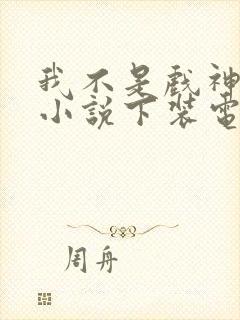 我不是戲神
小說下裝電
周舟